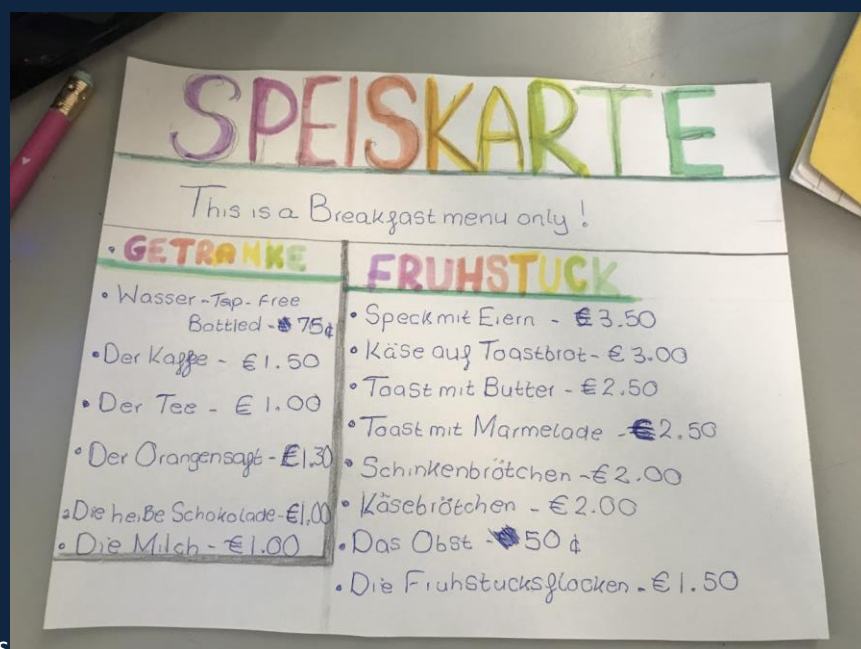 SPEISKARTE
This is a Breakfast menu only!
• GETRANKE
• Wasser - Tap - Free
Bottled - 75¢
• Der Kaffe - €1.50
• Der Tee - €1.00
• Der Orangensaft - €1,30
• Die heiße Schokolade - €1,00
• Die Milch - €1.00
FRUHSTUCK
• Speck mit Eiern - €3.50
• Käse auf Toastbrot - €3.00
• Toast mit Butter - €2.50
• Toast mit Marmelade - €2.50
• Schinkenbrötchen - €2.00
• Käsebrötchen - €2.00
• Das Obst - 50¢
• Die Fruhstucksflocken - €1.50
s